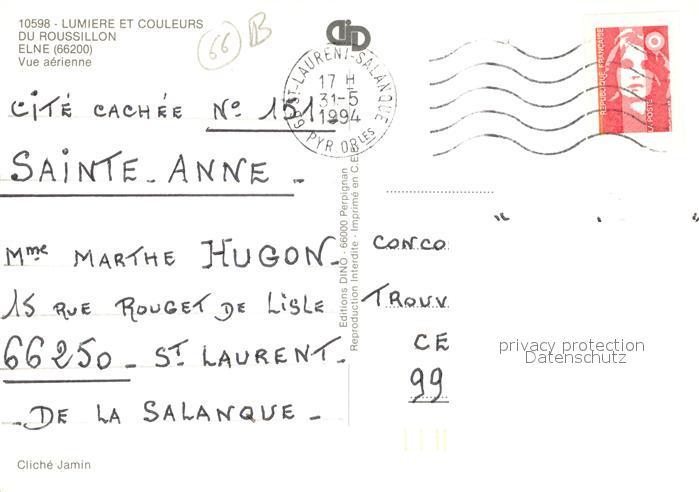 10598 - LUMIERE ET COULEURS
DU ROUSSILLON
ELNE (66200)
Vue aérienne
66 B
CITÉ CACHÉE N° 151
SAINTE-ANNE-
Mme MARTHE HUGON-
15 RUE ROUGET DE LISLE
66250 - ST LAURENT-
-DE LA SALANQUE-
Cliché Jamin
66 ST-LAURENT-SALANQUE
17 H
31-5
1994
PYR ORles
REPUBLIQUE FRANÇAISE
LA POSTE
Editions DINO - 66000 Perpignan
Reproduction Interdite - Imprimé en C.E.
CONCO
TROUV
CE
99
privacy protection
Datenschutz